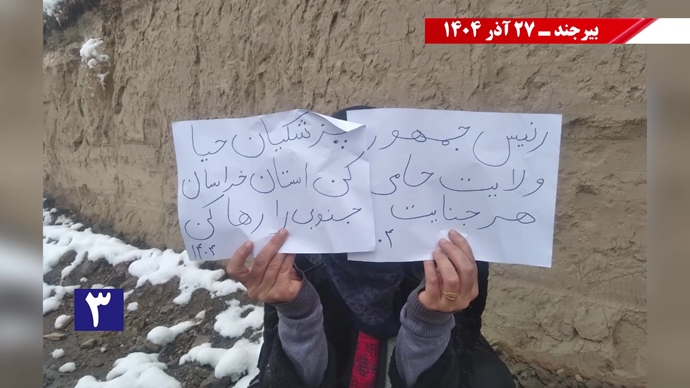 بیرجند ــ ۲۷ آذر ۱۴۰۴
رئیس جمهور پزشکیان حیا
ولایت حامی کن استان خراسان
هر جنایت جنوبی را رها کن
۱۴۰۴
۳